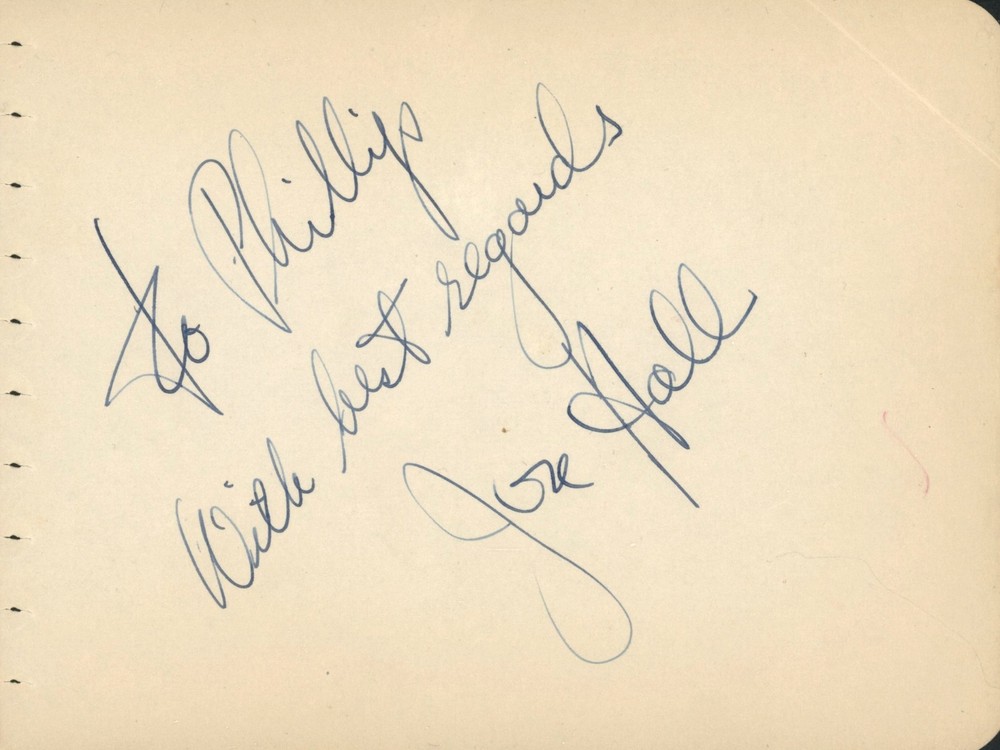 To Phillip
With best regards
Jon Hall